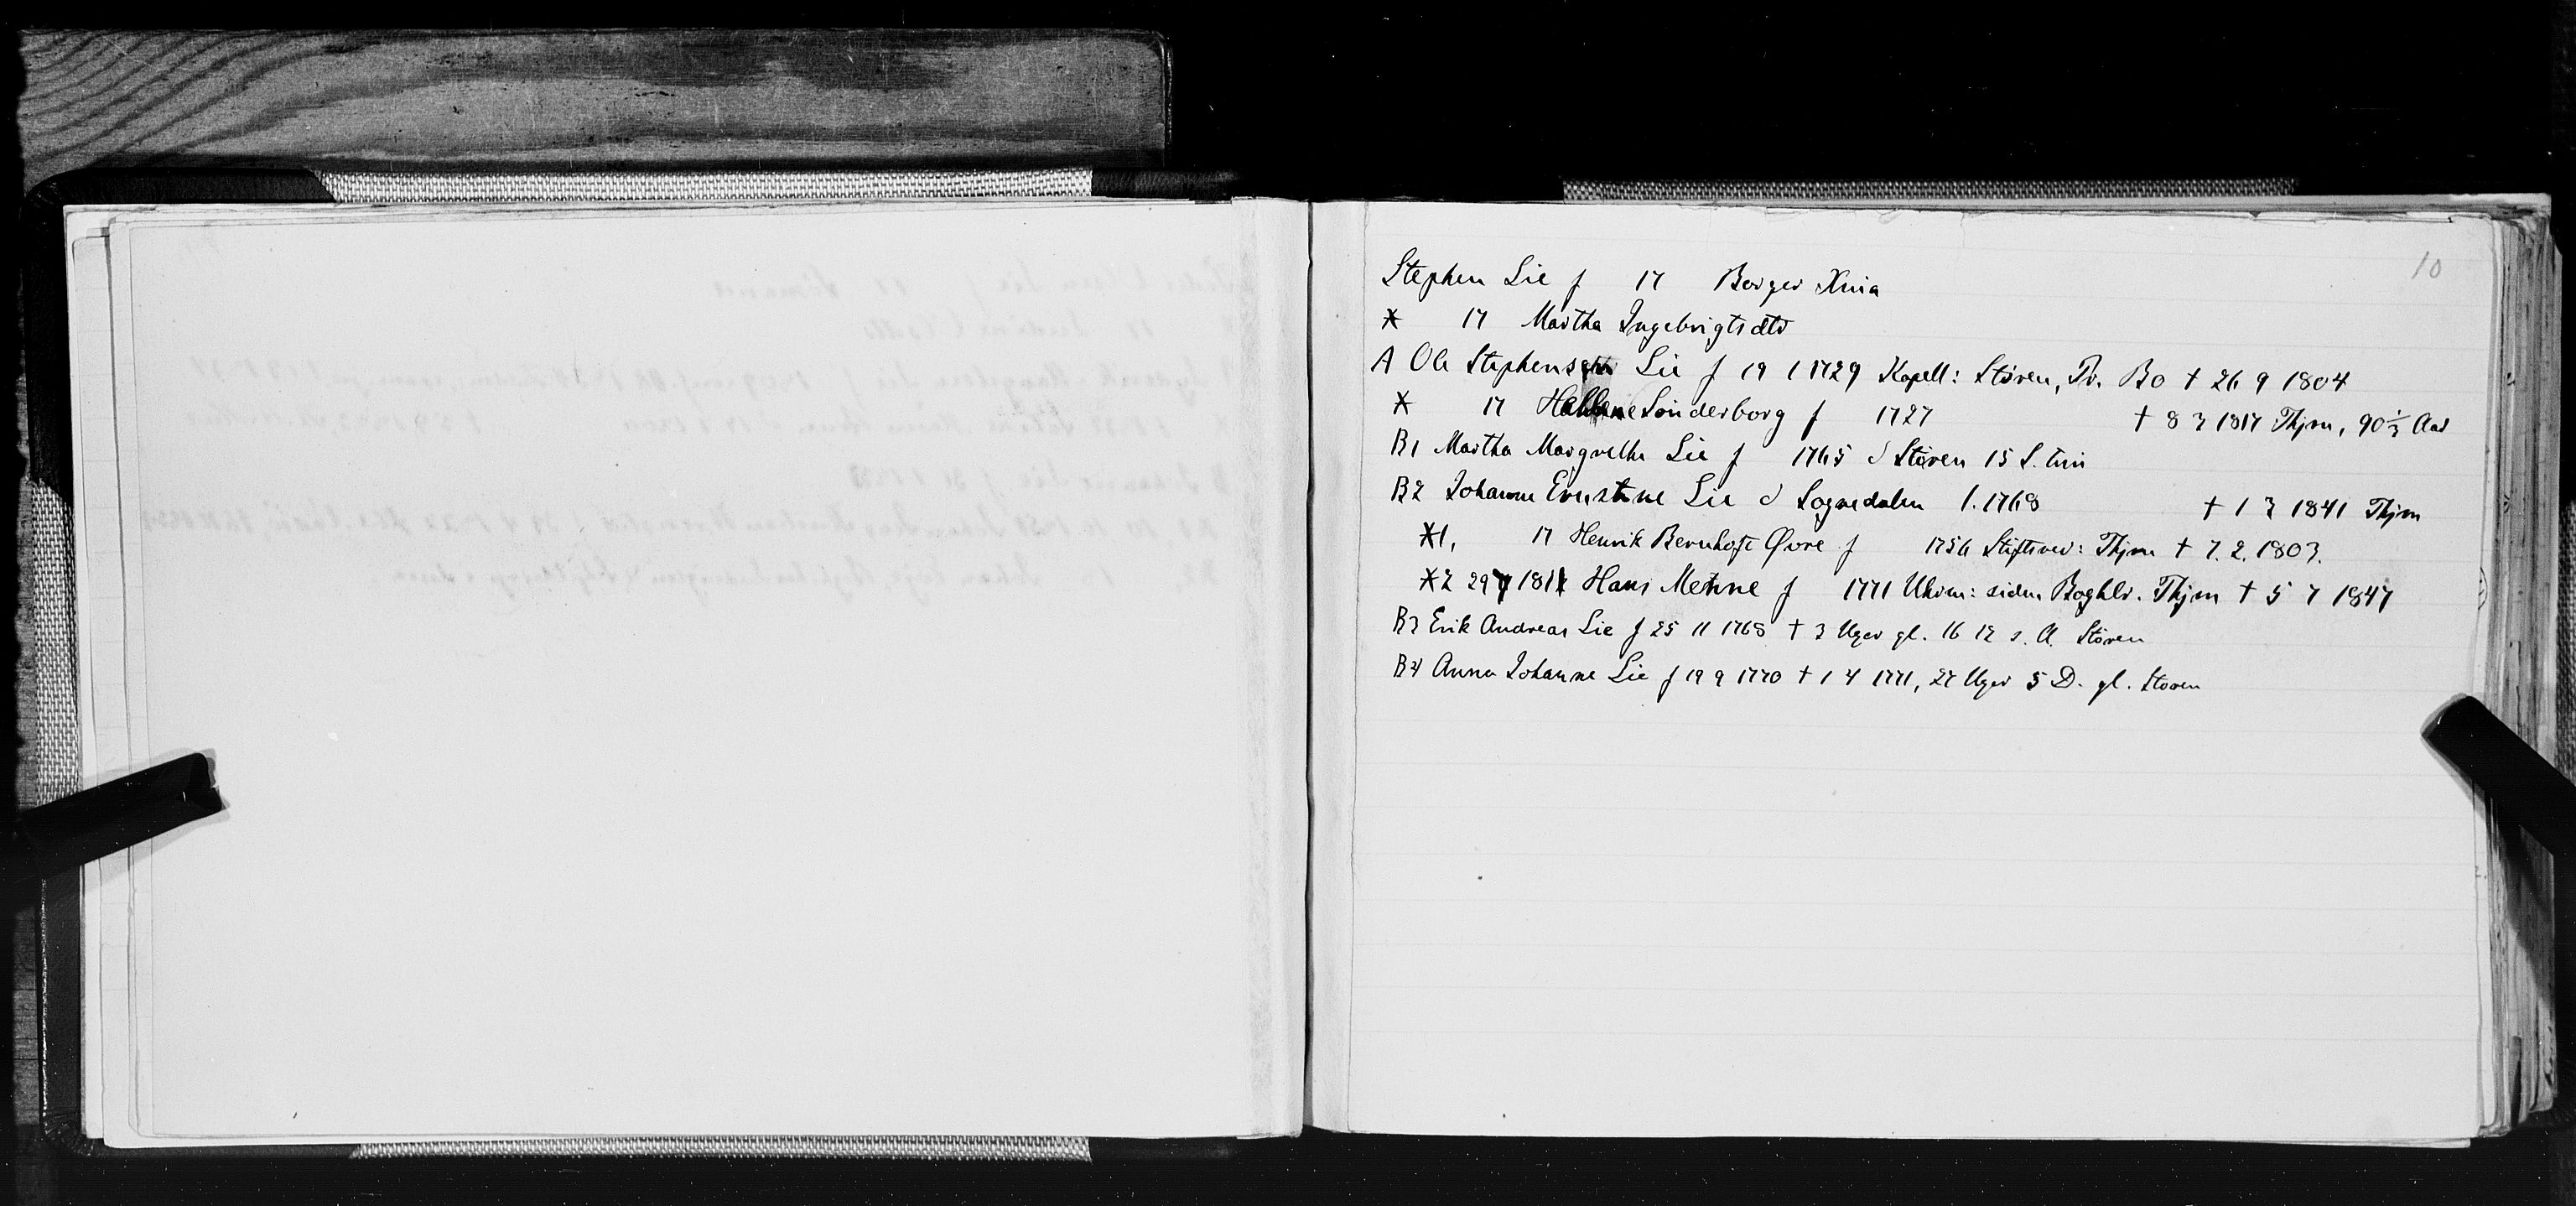 10
Stephen Lie f 17 Borger Xnia
* 17 Martha Ingebrigtsdtr
A Ole Stephens Lie f 19 1 1729 Kapell: Stören, Tr. Bo † 26 9 1804
* 17 Sönderborg f 1727 † 8 3 1817 Thjm, 90⅓ Aar
B1 Martha Margrethe Lie f 1765 d Stören 15 S. trin
B2 Johanne Ernstine Lie d Sognedalen 1.1768 † 1 3 1841 Thjm
*1, 17 Henrik Bernhoft Øvre f 1756 Stiftsrev: Thjm † 7.2.1803.
*2 29 7 181 Hans Mehne f 1771 Uhrm: siden Boghlr. Thjm † 5 7 1847
B3 Erik Andreas Lie f 25 11 1768 † 3 Uger gl. 16 12 s. A. Stören
B4 Anna Johanne Lie f 19 9 1770 † 1 4 1771, 27 Uger 5 D. gl. Stören